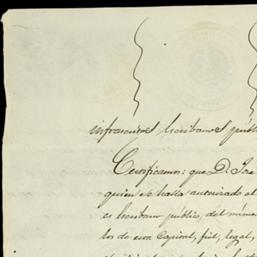 infrascritos Escribanos públi
Certificamos: que D. José
quien se halla autorizado el
es Escribano público, del núme
los de esta Capital, fiel, legal,